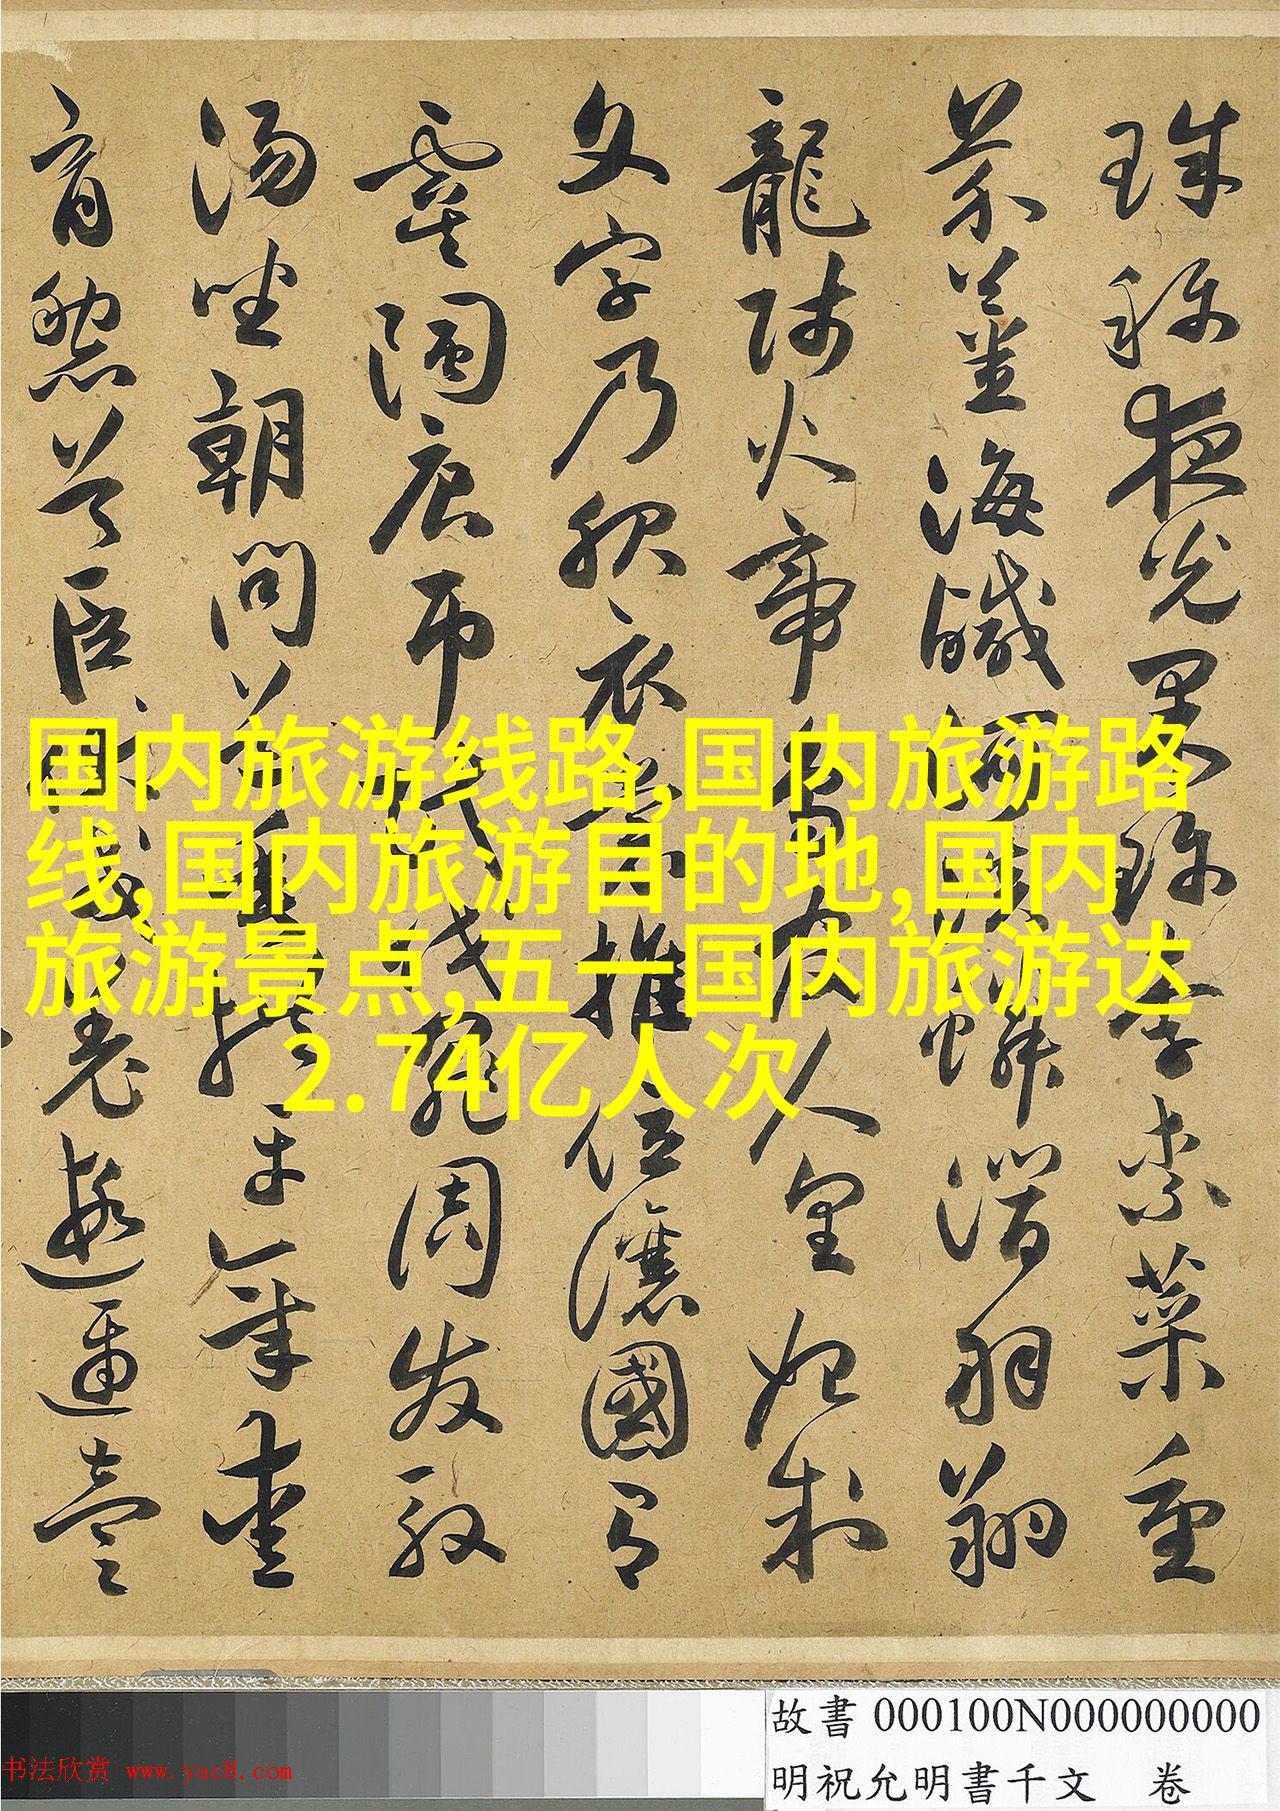 珠稱夜光果珍李柰菜重
芥薑海鹹河淡鱗潛羽翔
龍師火帝鳥官人皇始制
文字乃服衣裳推位讓國有
虞陶唐弔民伐罪周發殷
湯坐朝問道垂拱平章愛
育黎首臣伏戎羌遐邇壹
国内旅游线路,国内旅游路
线,国内旅游目的地,国内
旅游景点,五一国内旅游达
2.74亿人次
故書 000100N000000000
明祝允明書千文 卷
书法欣赏 www.yac8.com